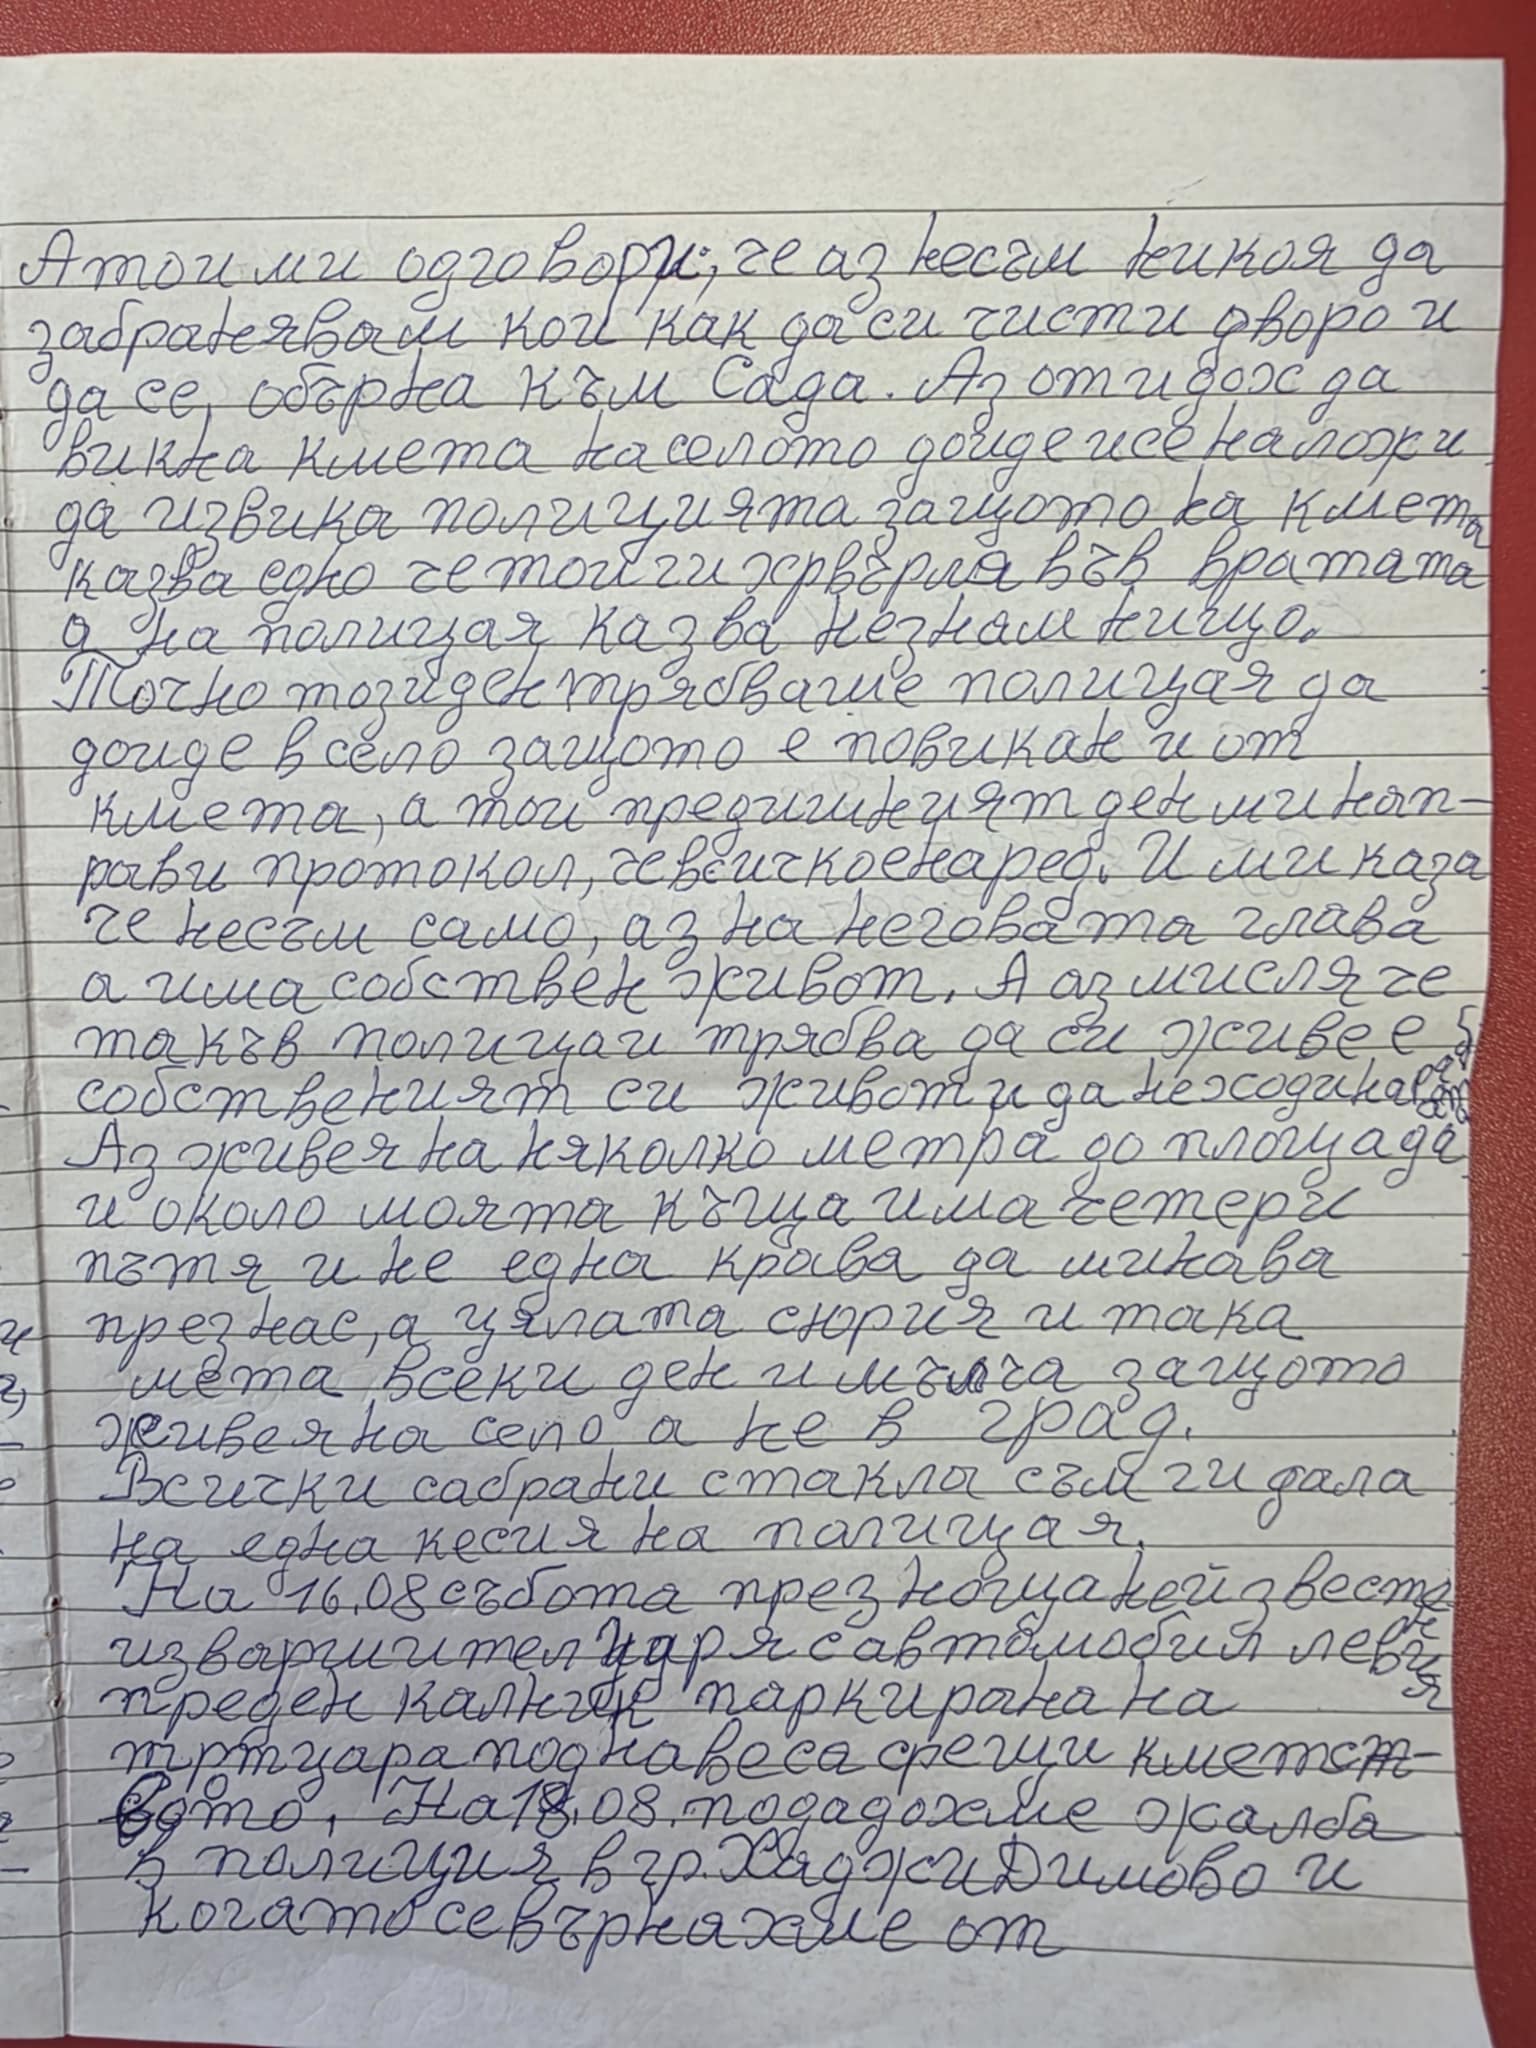 А тои ми одговори, че аз несъм никоя да
забранявам кои как да си чисти дворо и
да се, обърна към Сада. Аз отидох да
викна кмета на селото доиде и се наложи
да извика полицията защото на кмета
казва едно че тои ги хрвърля във вратата
а на полицая казва незнам нищо.
Точно този ден трябваше полицая да
доиде в село защото е повикан и от
кмета, а тои предишният ден ми нап-
рави протокол, че всичко е наред. И ми каза
че несъм само, аз на неговата глава
а има собствен живот. А аз мисля че
такъв полицаи трябва да си живее
собственият си живот и да неходи на работа
Аз живея на няколко метра до площада
и около моята къща има четери
пътя и не една крава да минава
през нас, а цялата сюрия и така
мета всеки ден и мълча защото
живея на село а не в град.
Всички сабрани стакла съм ги дала
на една кесия на полицая.
На 16.08 събота през нощта нейзвестен
извършител удря с автомобил левия
преден калник паркирана на
тртуара под навеса срещи кметст-
вото. На 18.08. подадохме жалба
в полиция в гр. Хаджи Димово и
когато се върнахме от